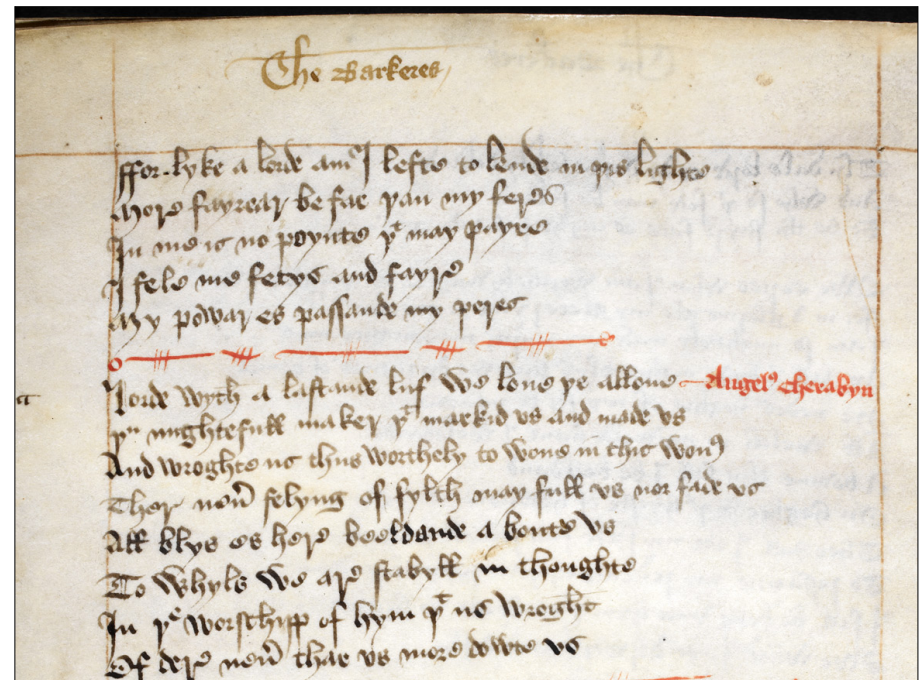 The Barkeres
ffor lyke a lorde am I lefte to lende in þis lighte
More fayrear be far þan my feres
In me is no poynte þt may payre
I fele me fetys and fayre
My powar es passande my peres
lorde wyth a lastande luf we loue þe allone Angels cherabyn
þu mightefull maker þt markid vs and made vs
And wroghte us thus worthely to wone in this won
Ther neu felyng of fylth may full vs nor fade vs
All blys es here beeldande a boute vs
To whyls we are stabyll in thoughte
In þe worschipp of hym þt us wroght
Of dere neu thar vs more dowte vs